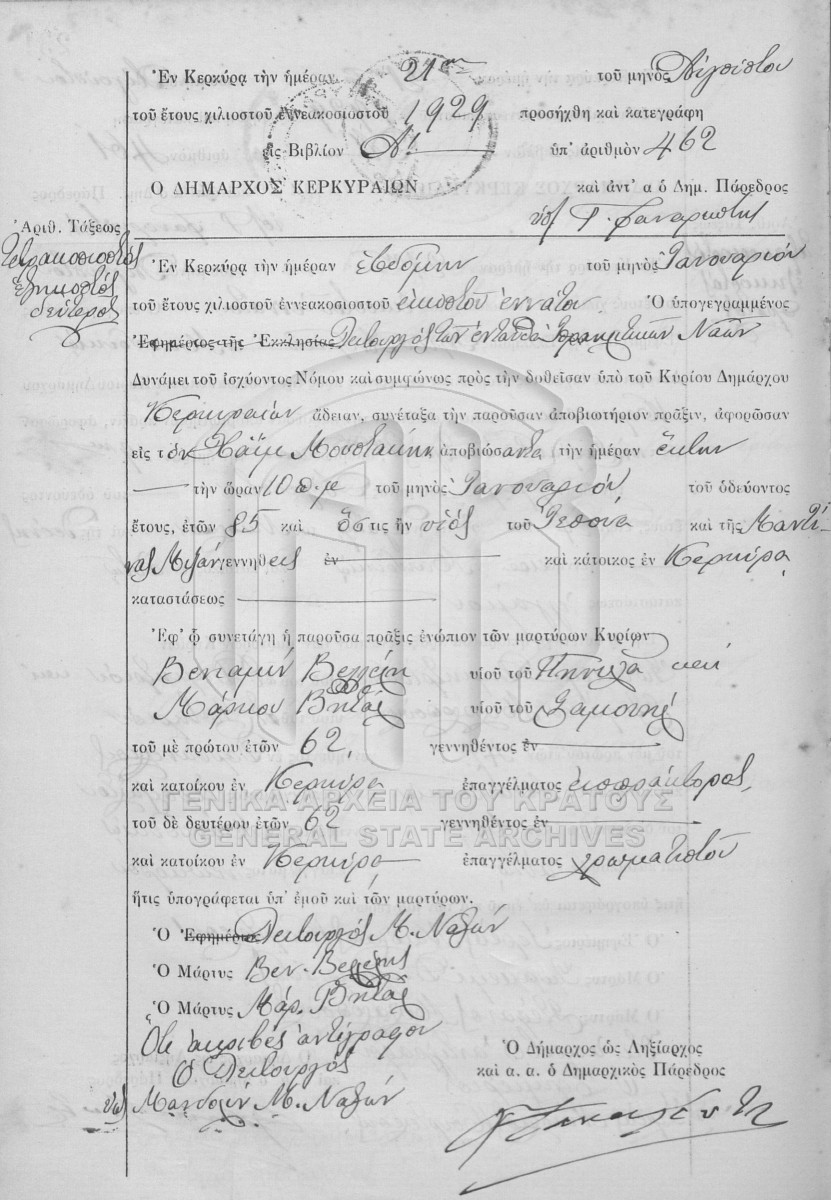 Ἐν Κερκύρᾳ τὴν ἡμέραν 21ην τοῦ μηνὸς Αὐγούστου
τοῦ ἔτους χιλιοστοῦ ἐννεακοσιοστοῦ 1929 προσήχθη καὶ κατεγράφη
εἰς Βιβλίον Α! ὑπ' ἀριθμὸν 462
Ο ΔΗΜΑΡΧΟΣ ΚΕΡΚΥΡΑΙΩΝ καὶ ἀντ' α ὁ Δημ. Πάρεδρος
Ἀριθ. Τάξεως
Τετρακοσιοστὸς
ἑξηκοστὸς
δεύτερος
Ἐν Κερκύρᾳ τὴν ἡμέραν ἑβδόμην τοῦ μηνὸς Ἰανουαρίου
τοῦ ἔτους χιλιοστοῦ ἐννεακοσιοστοῦ εἰκοστοῦ ἐννάτου Ὁ ὑπογεγραμμένος
Ἐφημέριος τῆς Ἐκκλησίας Λειτουργὸς τῶν ἐνταῦθα Ἰσραηλιτικῶν Ναῶν
Δυνάμει τοῦ ἰσχύοντος Νόμου καὶ συμφώνως πρὸς τὴν δοθεῖσαν ὑπὸ τοῦ Κυρίου Δημάρχου
Κερκυραίων ἄδειαν, συνέταξα τὴν παροῦσαν ἀποβιωτήριον πρᾶξιν, ἀφορῶσαν
εἰς τὸν Χαῒμ Μουστάκην ἀποβιώσαντα τὴν ἡμέραν ἕκτην
τὴν ὥραν 10 π.μ τοῦ μηνὸς Ἰανουαρίου τοῦ ὁδεύοντος
ἔτους, ἐτῶν 85 καὶ ὅστις ἦν υἱὸς τοῦ Ἰεσουᾶ καὶ τῆς Μαντί-
νας γεννηθεὶς ἐν καὶ κάτοικος ἐν Κερκύρᾳ
καταστάσεως
Ἐφ' ᾧ συνετάγη ἡ παροῦσα πρᾶξις ἐνώπιον τῶν μαρτύρων Κυρίων
Βενιαμὶν Βελλέλη υἱοῦ τοῦ καὶ
Μάρκου Βιτὰλ υἱοῦ τοῦ Σαμουὴλ
τοῦ μὲ πρώτου ἐτῶν 62, γεννηθέντος ἐν
καὶ κατοίκου ἐν Κερκύρᾳ ἐπαγγέλματος εἰσπράκτορος,
τοῦ δὲ δευτέρου ἐτῶν 62 γεννηθέντος ἐν
καὶ κατοίκου ἐν Κερκύρᾳ ἐπαγγέλματος χρωματιστοῦ
ἥτις ὑπογράφεται ὑπ' ἐμοῦ καὶ τῶν μαρτύρων.
Ὁ Ἐφημέριος Λειτουργὸς Μ. Ναζὸν
Ὁ Μάρτυς Βεν. Βελλέλης
Ὁ Μάρτυς Μάρ. Βιτὰλ
Ὅτι ἀκριβὲς ἀντίγραφον
Ὁ Λειτουργὸς
Μ. Ναζὸν
Ὁ Δήμαρχος ὡς Ληξίαρχος
καὶ α. α. ὁ Δημαρχικὸς Πάρεδρος
ΓΕΝΙΚΑ ΑΡΧΕΙΑ ΤΟΥ ΚΡΑΤΟΥΣ
GENERAL STATE ARCHIVES